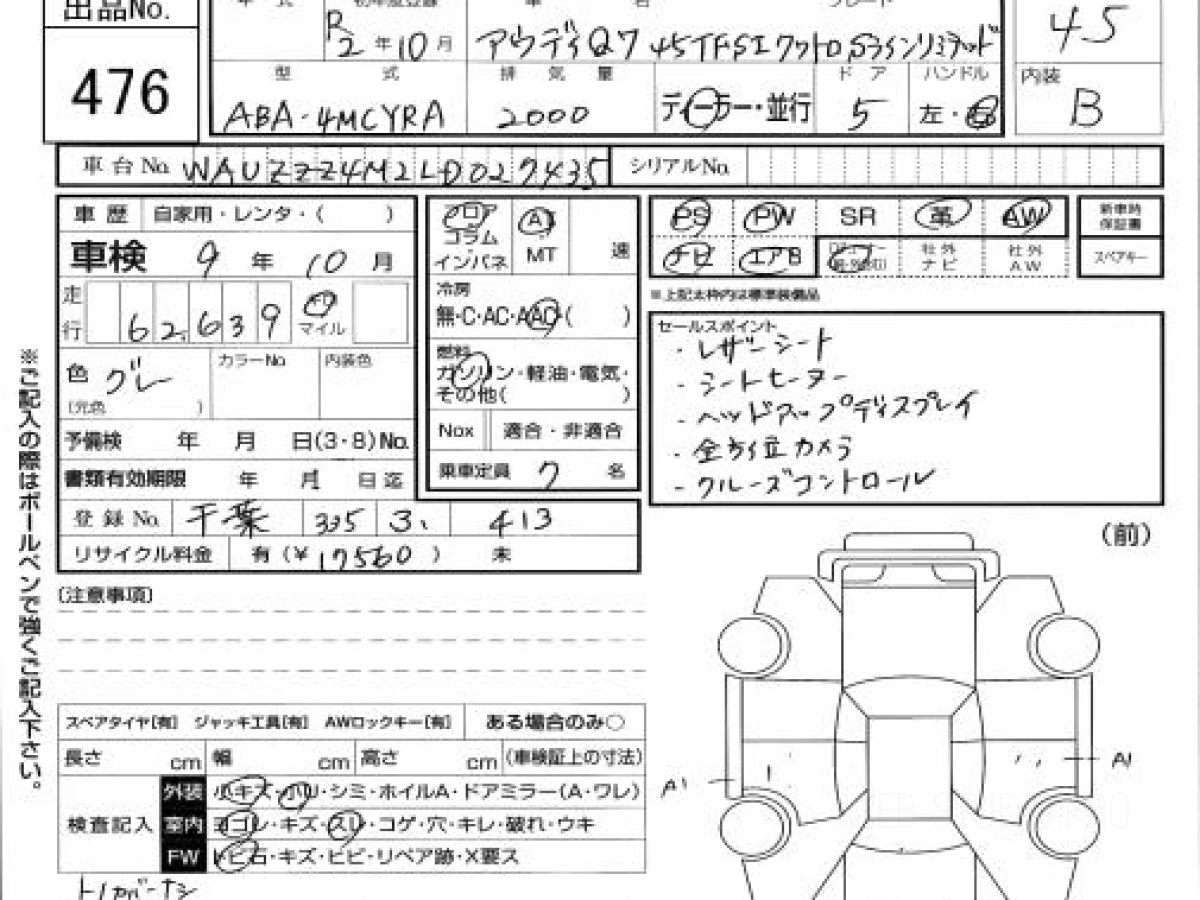 出品No.
476
年 式
初年度登録
R
2 年 10 月
車 名
グレード
アウディ Q7 45TFSI クワトロ Sラインリミテッド
型 式
ABA-4MCYRA
排 気 量
2000
ディーラー・並行
ド ア
5
ハンドル
左・右
45
内装
B
車台No. WAUZZZ4M2LD027435
シリアルNo.
車 歴 自家用・レンタ・( )
車検 9 年 10 月
走行 62,639 マイル
色 グレー
(元色 )
カラーNo.
内装色
予備検 年 月 日(3・8)No.
書類有効期限 年 月 日迄
登録No. 千葉 335 ろ 413
リサイクル料金 有 (¥ 17560 ) 未
フロア
コラム
インパネ
A
MT
速
冷房
無・C・AC・AAC・( )
燃料
ガソリン・軽油・電気・
その他( )
Nox 適合・非適合
乗車定員 7 名
PS PW SR 革 AW
ナビ エアB
社外ナビ
社外AW
新車時保証書
スペアキー
※上記太枠内は標準装備品
セールスポイント
・レザーシート
・シートヒーター
・ヘッドアップディスプレイ
・全方位カメラ
・クルーズコントロール
(前)
(注意事項)
※ご記入の際はボールペンで強くご記入下さい。
スペアタイヤ[有] ジャッキ工具[有] AWロックキー[有] ある場合のみ○
長さ cm 幅 cm 高さ cm (車検証上の寸法)
検査記入
外装 小キズ・小凹・シミ・ホイルA・ドアミラー(A・ワレ)
室内 ヨゴレ・キズ・スレ・コゲ・穴・キレ・破れ・ウキ
FW トビ石・キズ・ヒビ・リペア跡・X要ス
トノカバーナシ
A1
A1